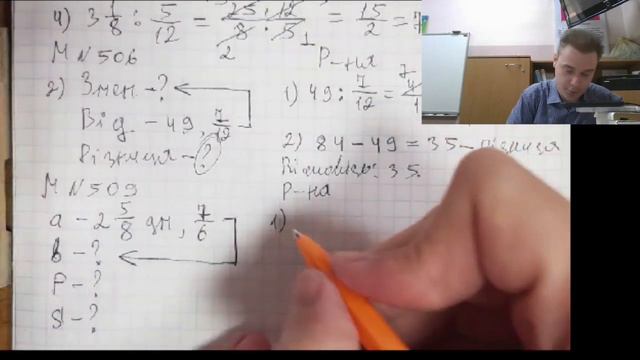 4) 3 1/8 : 5/12 = 25 · 12 / 8 · 5 = 15/2 =
2 1
М N 506
2) Змен - ?
Від. - 49, 7/12
Різниця - ?
Р-ня
1) 49 : 7/12 =
2) 84 - 49 = 35 - різниця
Відповідь: 35.
М N 509
a - 2 5/8 дм, 7/6
b - ?
P - ?
S - ?
Р-ня
1)